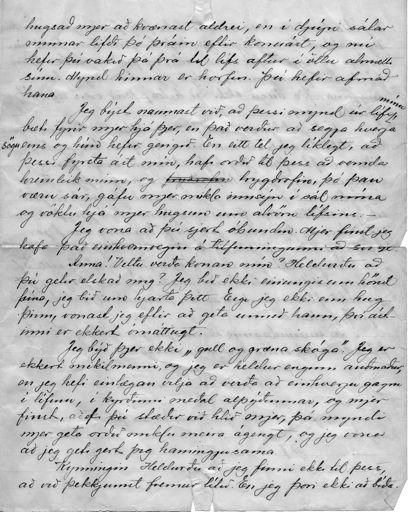 hugsað mjer að kvænast aldrei, en í djúpi sálar
minnar lifði þó þráin eftir konuást, og nú
hefir þú vakið þá þrá til lífs aftur í öllu almætti
sínu. Mynd hinnar er horfin. Þú hefir afmáð
hana.
Jeg býst naumast við, að þessi mynd úr lífi mínu
bæti fyrir mjer hjá þer, en það verður að segja hverja
sögu eins og hún hefir gengið. En eitt tel jeg líklegt, að
þessi fyrsta ást mín, hafi orðið til þess að vernda
hreinleik minn, og hryggbrotin, þó þau
væru sár, gáfu mjer mikla innsýn í sál mína
og vöktu hjá mjer hugsun um alvöru lífsins. -
Jeg vona að þú sjert óbundin. Mjer finst jeg
hafa það einhvernveginn á tilfinningunni að svo sje
Anna! Viltu verða konan mín? Heldurðu að
þú getir elskað mig? Jeg bið ekki einungis um hönd
þína, jeg bið um hjarta þitt. Eigi jeg ekki um hug
þinn, vonast jeg eftir að geta unnið hann, því ást
inni er ekkert ómáttugt.
Jeg býð þjer ekki „gull og græna skóga". Jeg er
ekkert mikilmenni, og jeg er heldur enginn auðmaður,
en jeg hefi einlægan vilja að verða að einhverju gagni
í lífinu, í kyrðinni meðal alþýðunnar, og mjer
finst, að ef þú stæðir við hlið mjer, þá myndi
mjer geta orðið miklu meira ágengt, og jeg vona
að jeg geti gert þig hamingjusama.
Kynningin. Heldurðu að jeg finni ekki til þess,
að við þekkjumst fremur lítið. En jeg þori ekki að bíða.